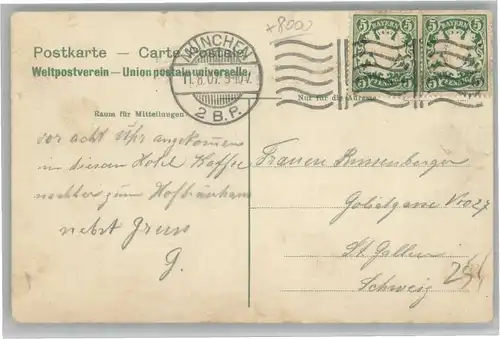 +8000
5 BAYERN 5 5 BAYERN 5
PFENNIG PFENNIG
Postkarte — Carte Postale
Weltpostverein — Union postale universelle
MÜNCHEN
11. 8. 07.
2 B.P.
Raum für Mitteilungen
Nur für die Adresse
vor acht Uhr angekommen
in diesem Hotel Kaffee
nachher zum Hofbräuhaus
nebst Gruss
G.
Frauen
Goliatgasse No 27
St. Gallen
Schweiz